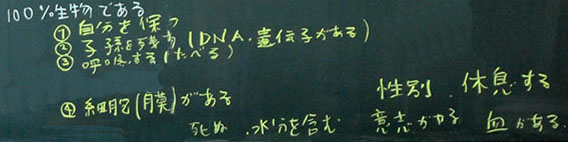 100%生物である
① 自分を保つ
② 子孫を残す(DNA.遺伝子がある)
③ 呼吸する(たべる)
④ 細胞(膜)がある
性別 休息する
死ぬ 水分を含む 意志がある 血がある